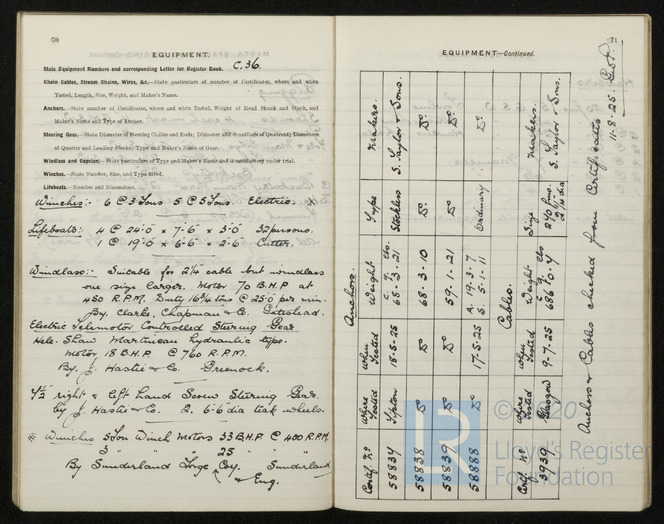 70
EQUIPMENT.
State Equipment Numbers and corresponding Letter for Register Book. C.36.
Chain Cables, Stream Chains, Wires, &c.—State particulars of number of Certificates, where and when
Tested, Length, Size, Weight, and Maker's Name.
Anchors.—State number of Certificates, where and when Tested, Weight of Head Shank and Stock, and
Maker's Name and Type of Anchor.
Steering Gear.—State Diameter of Steering Chains and Rods; Diameter and Scantlings of Quadrant; Diameters
of Quarter and Leading Blocks; Type and Maker's Name of Gear.
Windlass and Capstan.—State particulars of Type and Maker's Name and if satisfactory under trial.
Winches.—State Number, Size, and Type fitted.
Lifeboats.—Number and Dimensions.
Winches:- 6 @ 3 Tons 5 @ 5 Tons. Electric. X
Lifeboats:- 4 @ 24'0" x 7'-6" x 3'0" 32 persons.
1 @ 19'0" x 6'-6" x 2'-6" Cutter.
Windlass:- Suitable for 2 1/4 cable but windlass
one size larger. Motor 70 B.H.P at
450 R.P.M. Duty 16 3/4 tons @ 25'0" per min.
By. Clarke, Chapman & Co. Gateshead.
Electric Telemotor Controlled Steering Gear
Hele-Shaw Martineau hydraulic type.
Motor 18 B.H.P @ 760 R.P.M.
By. J. Hastie & Co. Greenock.
right & left hand Screw Steering Gear
by J Hastie & Co. 2. 6'6" dia teak wheels.
X Winches 5 Ton Winch Motors 33 B.H.P @ 400 R.P.M.
3 " " " 25 " " "
By Sunderland Forge Coy. Sunderland
& Eng.
71
EQUIPMENT—Continued.
Anchors.
Certif. No Where Tested When Tested Weight Type Makers.
C. q. lbs
58834 Tipton 18-5-25 68-3-21 Stockless S. Taylor & Sons.
58838 Do Do 68-3-10 Do Do
58839 Do Do 59-1-21 Do Do
58888 Do 17-5-25 A. 19-3-7 Ordinary Do
S. 5-1-11
Cables.
Certf. No Where Tested When Tested Weight Size Makers.
C. q. lbs
3939 Glasgow 9-7-25 686-0-4 270 fms. 2 1/4 dia S. Taylor & Sons.
Anchors & Cables checked from Certificates 11-3-25.
© 2020
LR
Lloyd's Register
Foundation